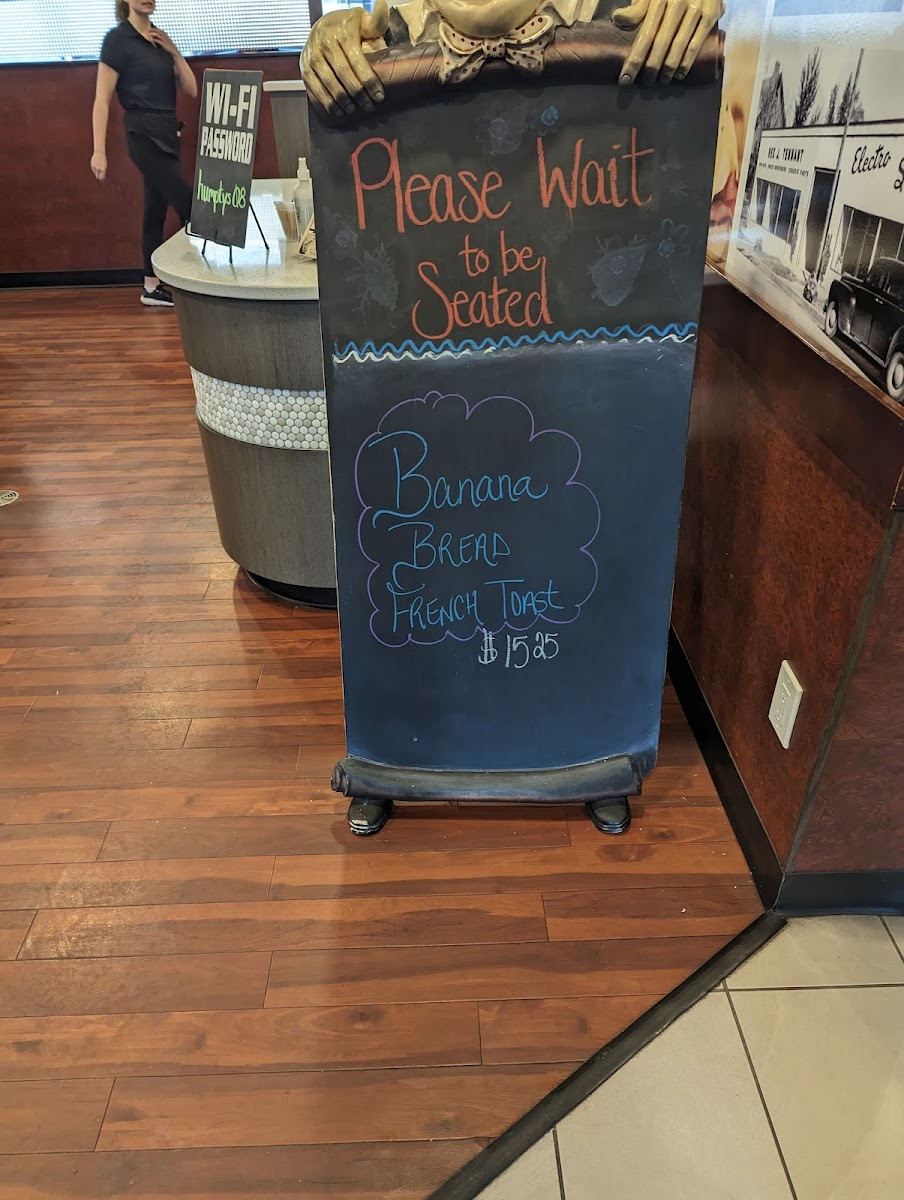 WI-FI
PASSWORD
humptys08
Please Wait
to be
Seated
Banana
BREAD
FRENCH TOAST
$15 25
TENNANT
Electro